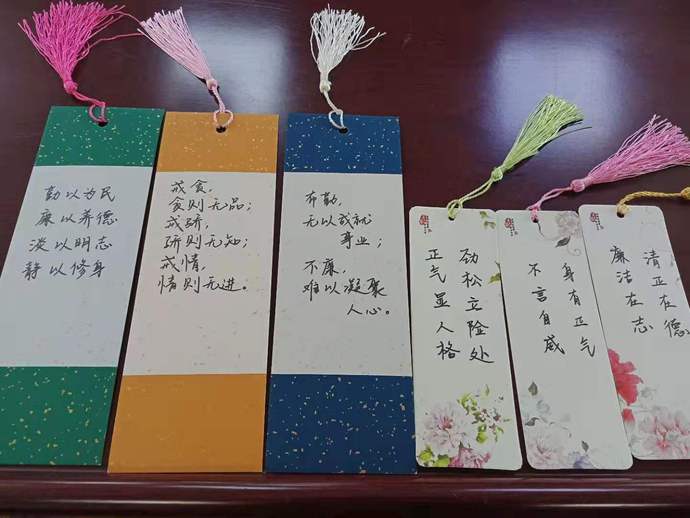 勤以为民
廉以养德
淡以明志
静以修身
戒食,
食则无品;
戒骄,
骄则无知;
戒情,
情则无进。
布勤,
无以成就
事业;
不廉,
难以凝聚
人心。
劲松立险处
正气显人格
身有正气
不言自威
清正在德
廉洁在志